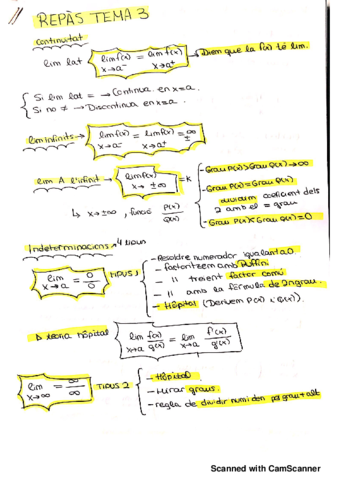 REPÀS TEMA 3
continuïtat
lim lat lim f(x) = lim f(x) → Diem que la f(x) té lim.
x→a⁻ x→a⁺
Si lim lat = → Continua en x=a.
Si no ≠ → Discontinua en x=a.
lim infinits → lim f(x) = lim f(x) = ±∞
x→a⁻ x→a⁺
lim A l'infinit → lim f(x) = K
x→±∞
- Grau P(x) > Grau Q(x) → ∞
- Grau P(x) = Grau Q(x)
dividim coeficient dels
2 amb el = grau
- Grau P(x) < Grau Q(x) = 0
↳ x→±∞, funció P(x)/Q(x)
Indeterminacions
lim = 0/0 TIPUS 1
x→a
- Resoldre numerador igualant a 0.
- factoritzem amb Ruffini.
- " traient factor comú
- " amb la fórmula de 2n grau.
- Hôpital (Derivem P(x) i Q(x)).
teoria hôpital lim f(x)/g(x) = lim f'(x)/g'(x)
x→a x→a
lim = ∞/∞ TIPUS 2
x→∞
- Hôpital
- Mirar graus.
- regla de dividir num i den pel grau + alt
Scanned with CamScanner